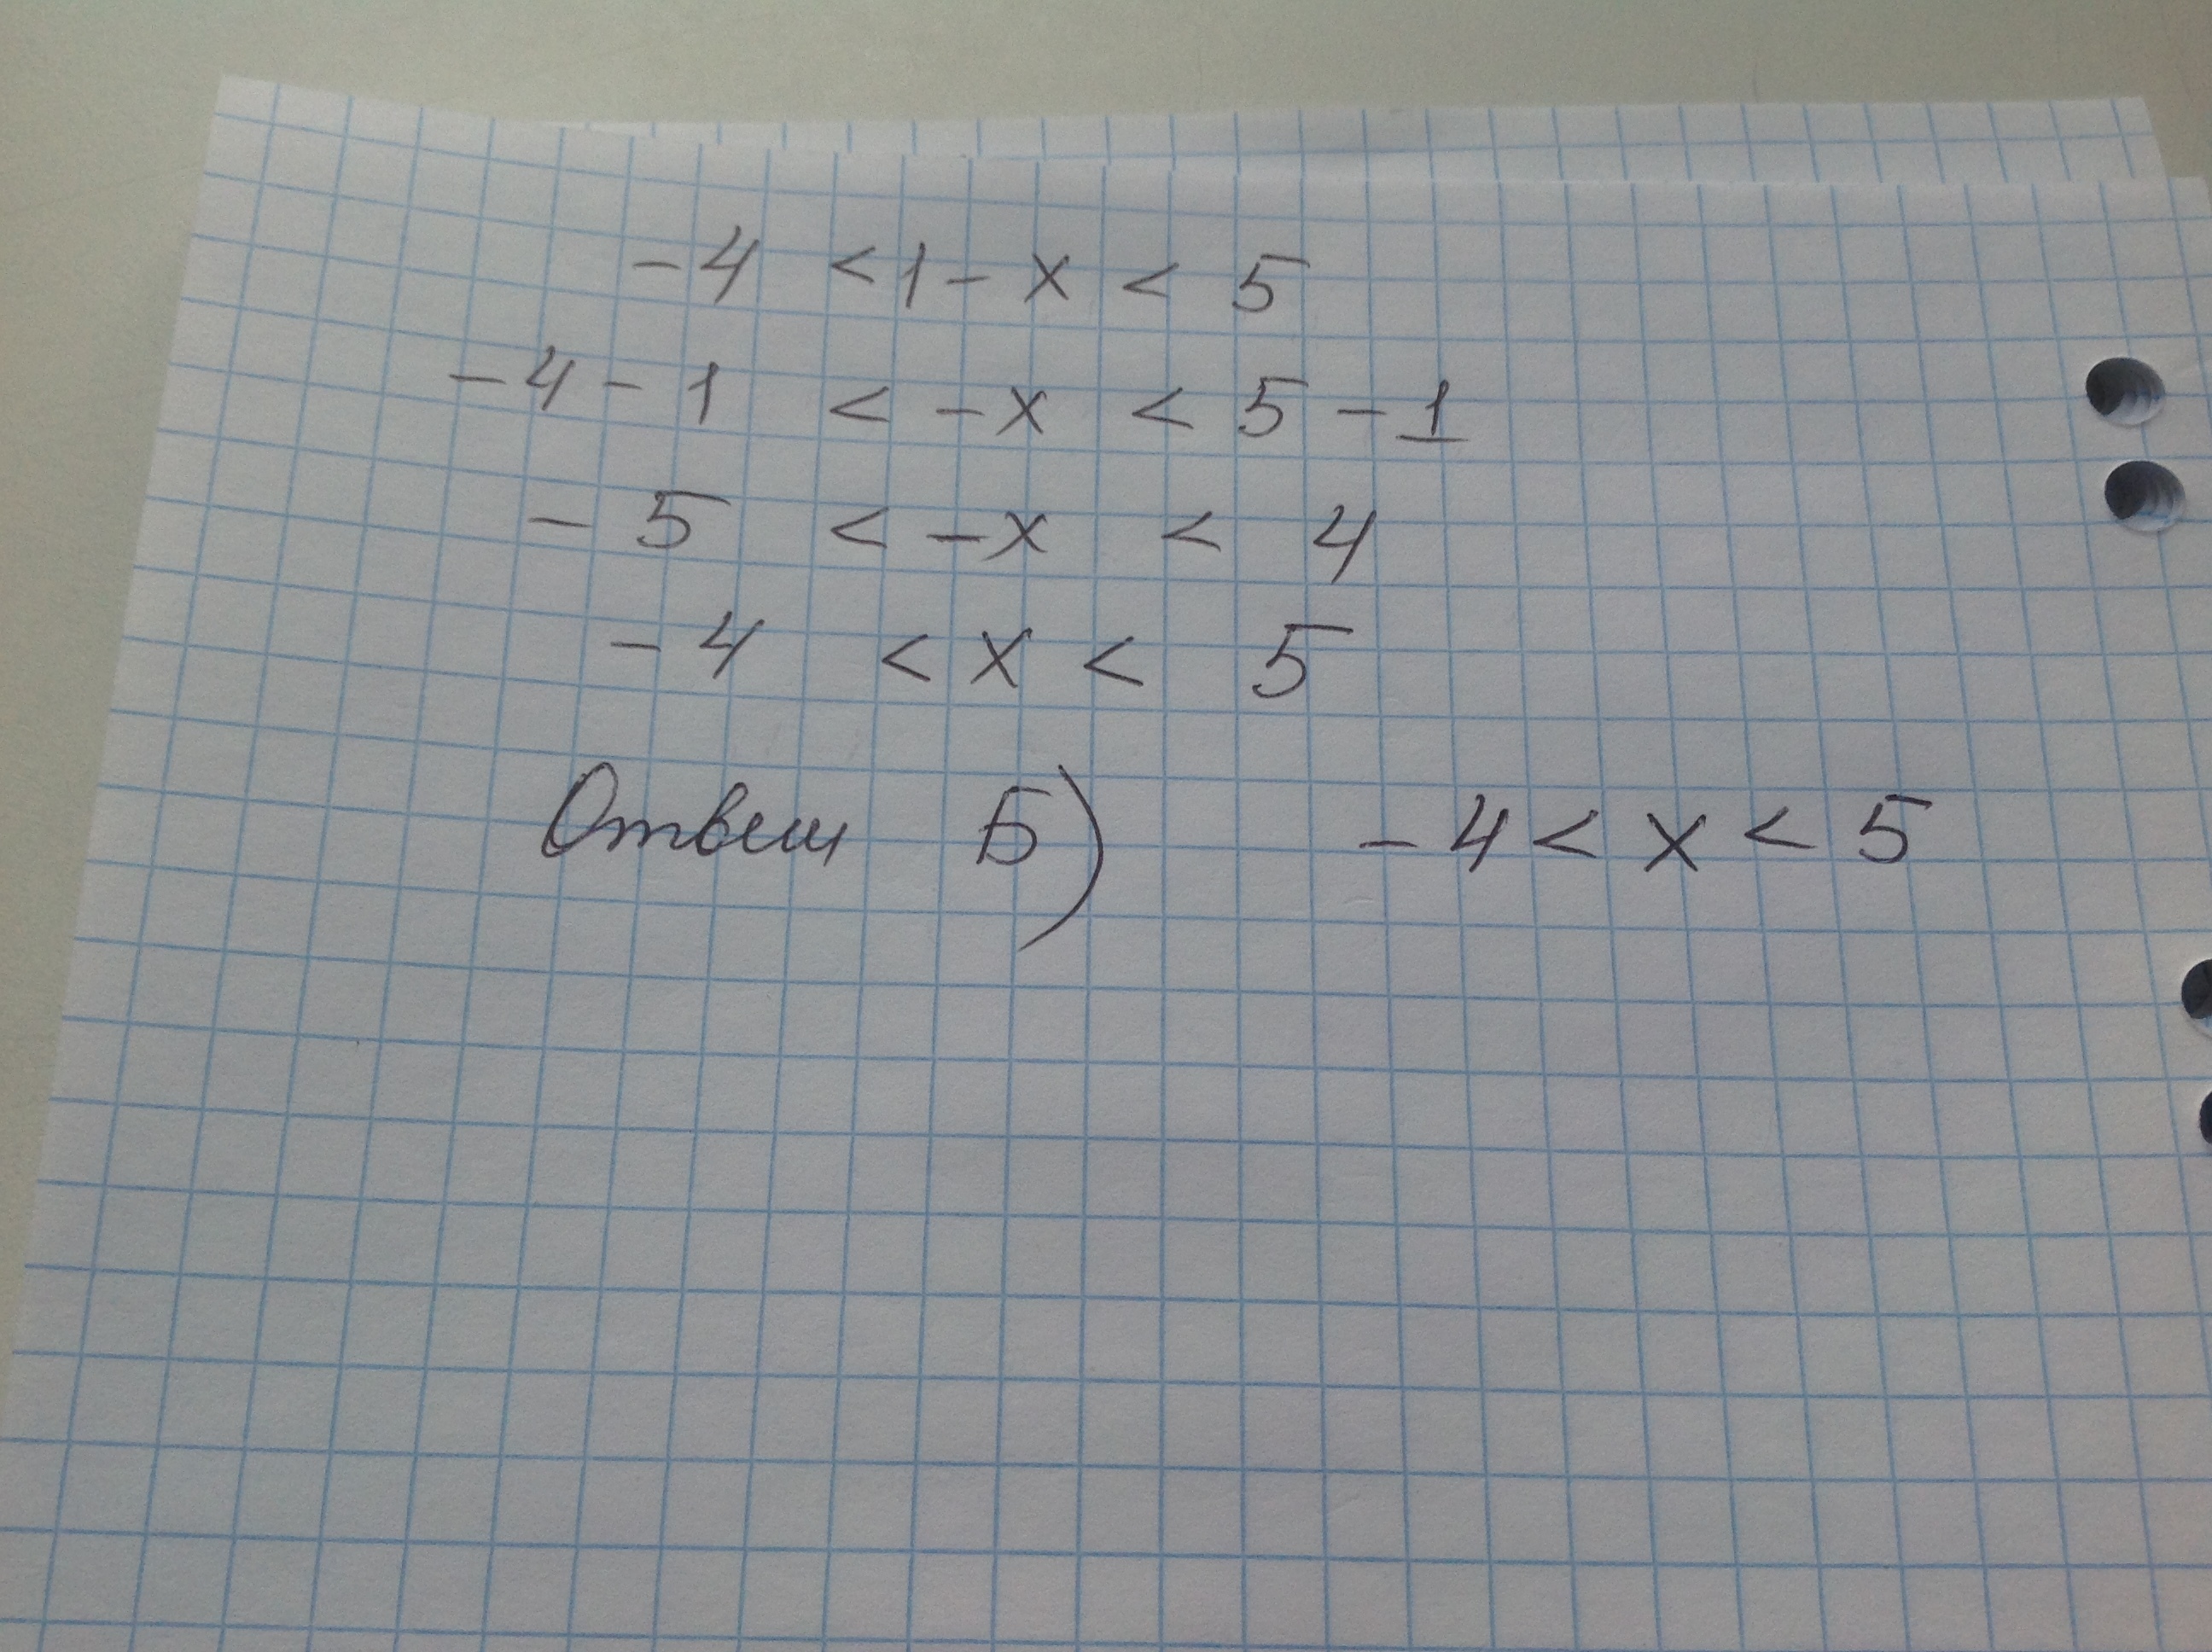 -4 < 1 - x < 5
-4 - 1 < -x < 5 - 1
-5 < -x < 4
-4 < x < 5
Ответ Б) -4 < x < 5